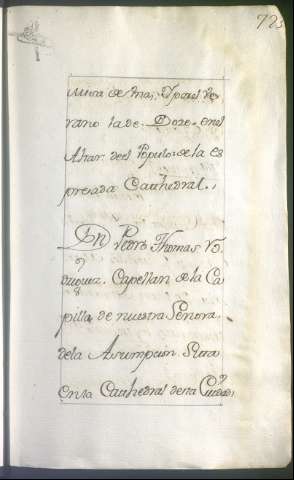 723
missa de onze, Ypor el Ve
rano la de Doze en el
Altar de el Populo de la ex
presada Cathedral.
Dn Pedro Thomas Ro
driguez Capellan de la Ca
pilla de nuestra Señora
de la Asumpcion Sita
en la Cathedral de esta Ciudad